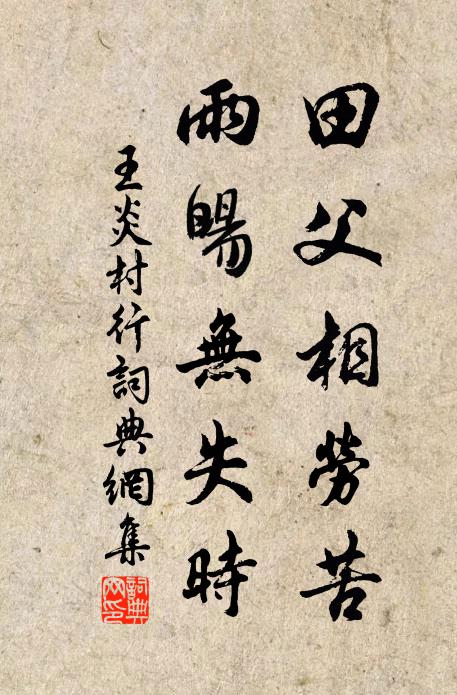 田父相勞苦
雨暘無失時
王炎村行詞典網集
詞典網印